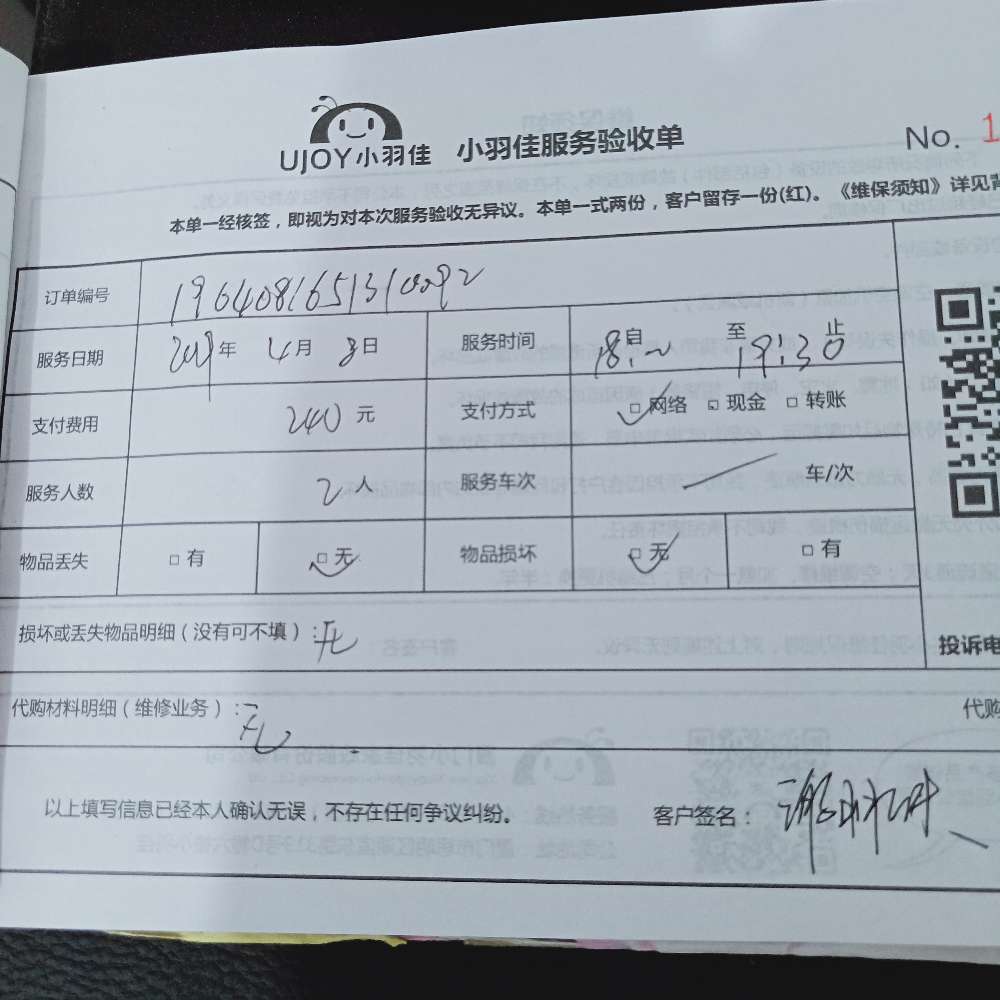 UJOY小羽佳 小羽佳服务验收单 No. 1
本单一经核签，即视为对本次服务验收无异议。本单一式两份，客户留存一份(红)。《维保须知》详见背
订单编号
服务日期 2019年 4月 8日 服务时间 自18:~ 至19:30止
支付费用 240元 支付方式 □网络 □现金 □转账
服务人数 2人 服务车次 车/次
物品丢失 □有 □无 物品损坏 □无 □有
损坏或丢失物品明细（没有可不填）：无
投诉电
代购材料明细（维修业务）：无 代购
以上填写信息已经本人确认无误，不存在任何争议纠纷。 客户签名：